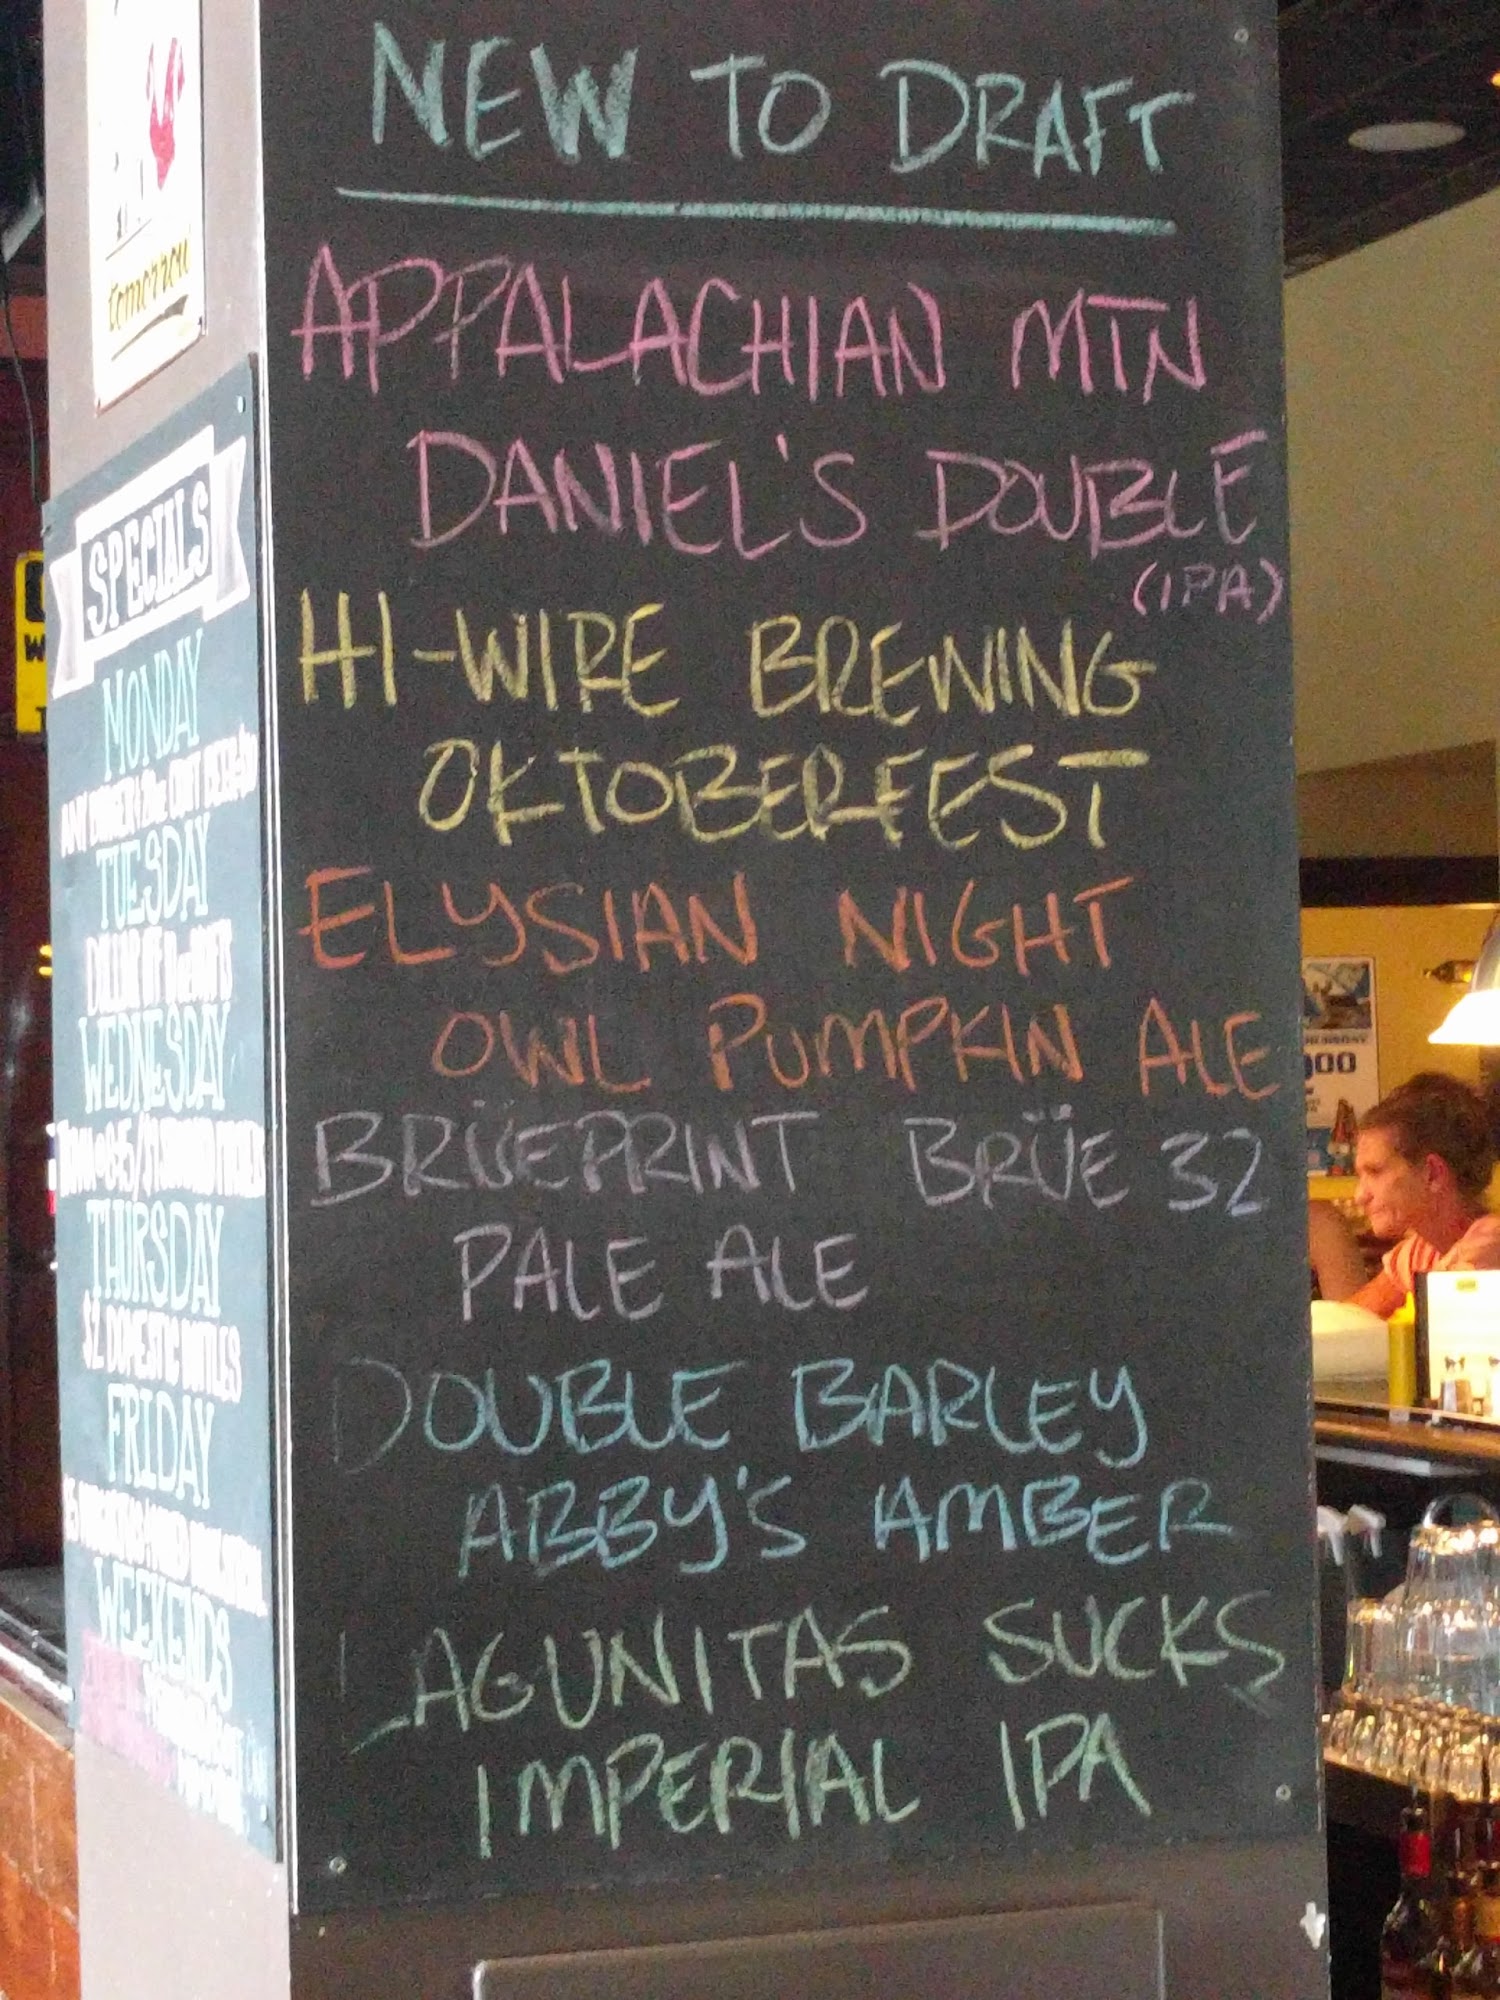 NEW TO DRAFT
APPALACHIAN MTN
DANIEL'S DOUBLE
(IPA)
HI-WIRE BREWING
OKTOBERFEST
ELYSIAN NIGHT
OWL PUMPKIN ALE
BRÜEPRINT BRÜE 32
PALE ALE
DOUBLE BARLEY
ABBY'S AMBER
LAGUNITAS SUCKS
IMPERIAL IPA
tomorrow
SPECIALS
MONDAY
TUESDAY
WEDNESDAY
THURSDAY
$2 DOMESTIC BOTTLES
FRIDAY
WEEKENDS